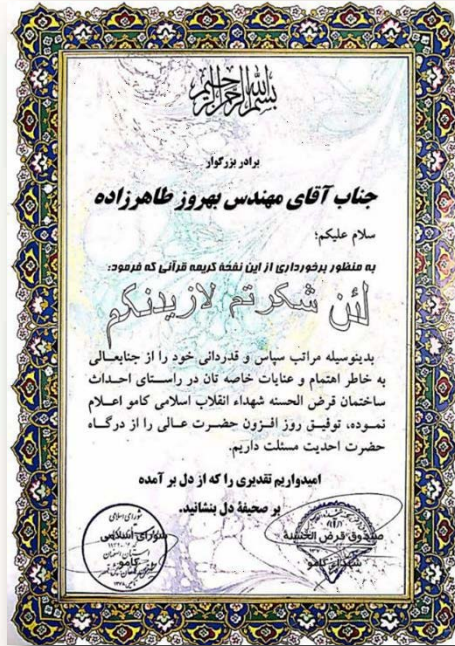 بسم الله الرحمن الرحیم
برادر بزرگوار
جناب آقای مهندس بهروز طاهرزاده
سلام علیکم؛
به منظور برخورداری از این نفحهٔ کریمه قرآنی که فرمود:
لئن شکرتم لازیدنکم
بدینوسیله مراتب سپاس و قدردانی خود را از جنابعـالی
به خاطر اهتمام و عنایات خاصه تان در راستـای احـداث
ساختمان قرض الحسنه شهداء انقلاب اسلامی کامو اعـلام
نمـوده، توفیـق روز افـزون حضـرت عـالی را از درگـاه
حضرت احدیت مسئلت داریم.
امیدواریم تقدیری را که از دل بر آمده
بر صحیفهٔ دل بنشانید.
شورای اسلامی
صندوق قرض الحسنه
کامو
شهدای کامو